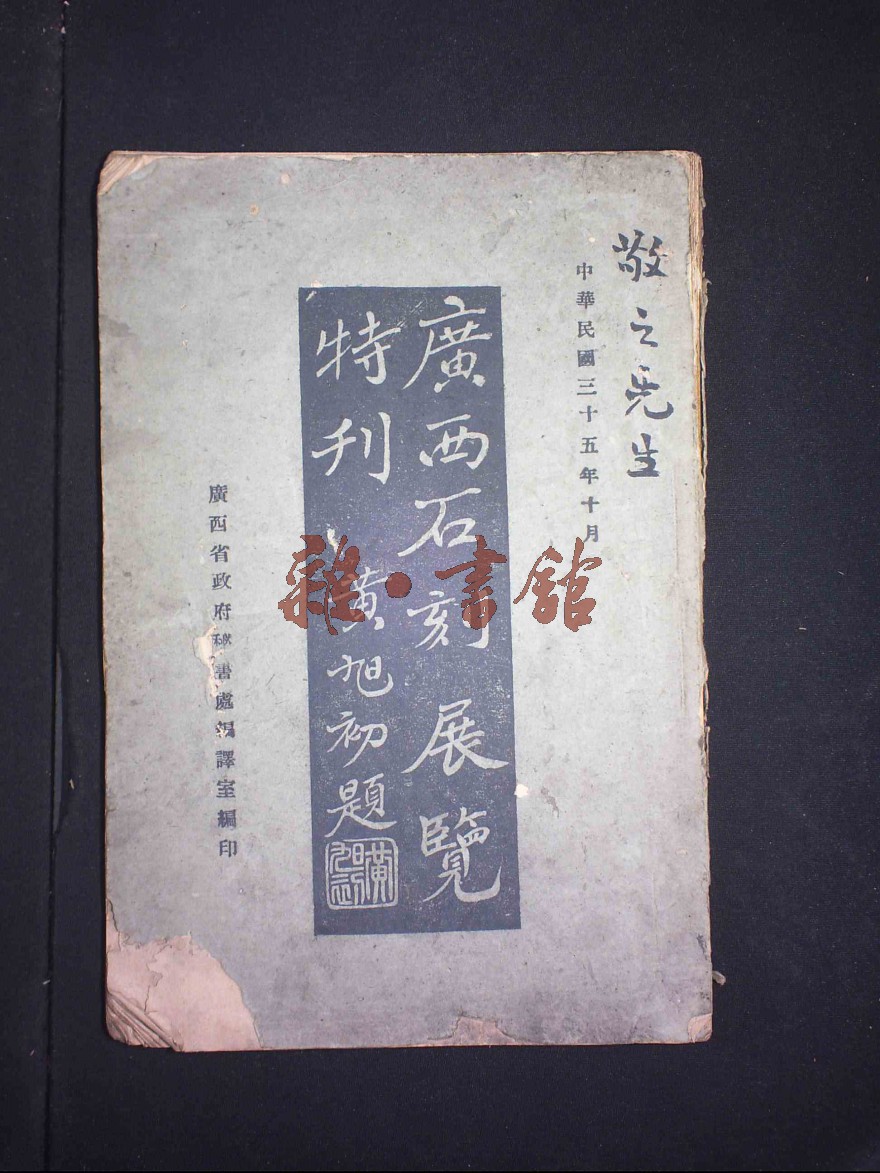 敬之先生
中華民國三十五年十月
廣西石刻展覽
特刊 黃旭初題
黃旭初印
廣西省政府秘書處編譯室編印
雜·書館